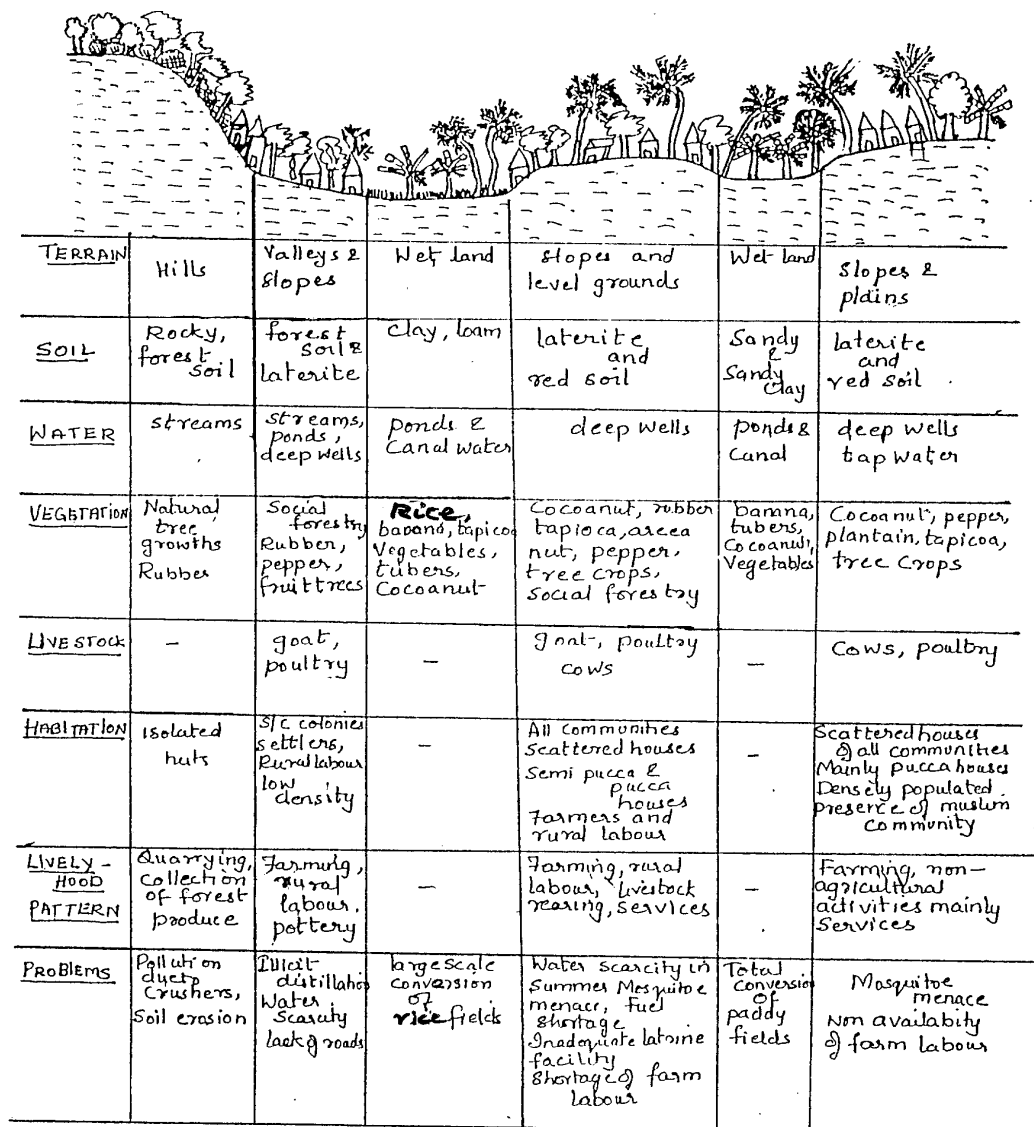 TERRAIN
Hills
Valleys &
slopes
Wet land
slopes and
level grounds
Wet land
slopes &
plains
SOIL
Rocky,
forest
soil
forest
soil &
laterite
clay, loam
laterite
and
red soil
Sandy
&
Sandy
clay
laterite
and
red soil
WATER
streams
streams,
ponds,
deep wells
ponds &
Canal water
deep wells
ponds &
Canal
deep wells
tap water
VEGETATION
Natural
tree
growths
Rubber
Social
forestry
Rubber,
pepper,
fruit trees
Rice,
banana, tapicoa
Vegetables,
tubers,
Cocoanut
Cocoanut, rubber
tapioca, areca
nut, pepper,
tree crops,
Social forestry
banana,
tubers,
Cocoanut,
Vegetables
Cocoanut, pepper,
plantain, tapicoa,
tree Crops
LIVESTOCK
-
goat,
poultry
-
goat, poultry
cows
-
Cows, poultry
HABITATION
isolated
huts
S/C colonies
settlers,
Rural labour
low
density
-
All communities
Scattered houses
Semi pucca &
pucca
houses
Farmers and
rural labour
-
Scattered houses
of all communities
Mainly pucca houses
Densely populated.
presence of muslim
community
LIVELY-
HOOD
PATTERN
Quarrying,
collection
of forest
produce
Farming,
rural
labour.
pottery
-
Farming, rural
labour, livestock
rearing, services
-
Farming, non-
agricultural
activities mainly
Services
PROBLEMS
Pollution
dueto
Crushers,
Soil erosion
Illicit
distillation
Water
Scarcity
lack of roads
large scale
conversion
of
rice fields
Water scarcity in
Summer Mosquitoe
menace, fuel
shortage
Inadequate latrine
facility
Shortage of farm
labour
Total
conversion
of
paddy
fields
Mosquitoe
menace
Non availabity
of farm labour